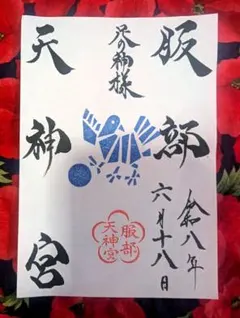 服部
足の神様
天神宮
令和八年
六月十八日
服部
天神宮